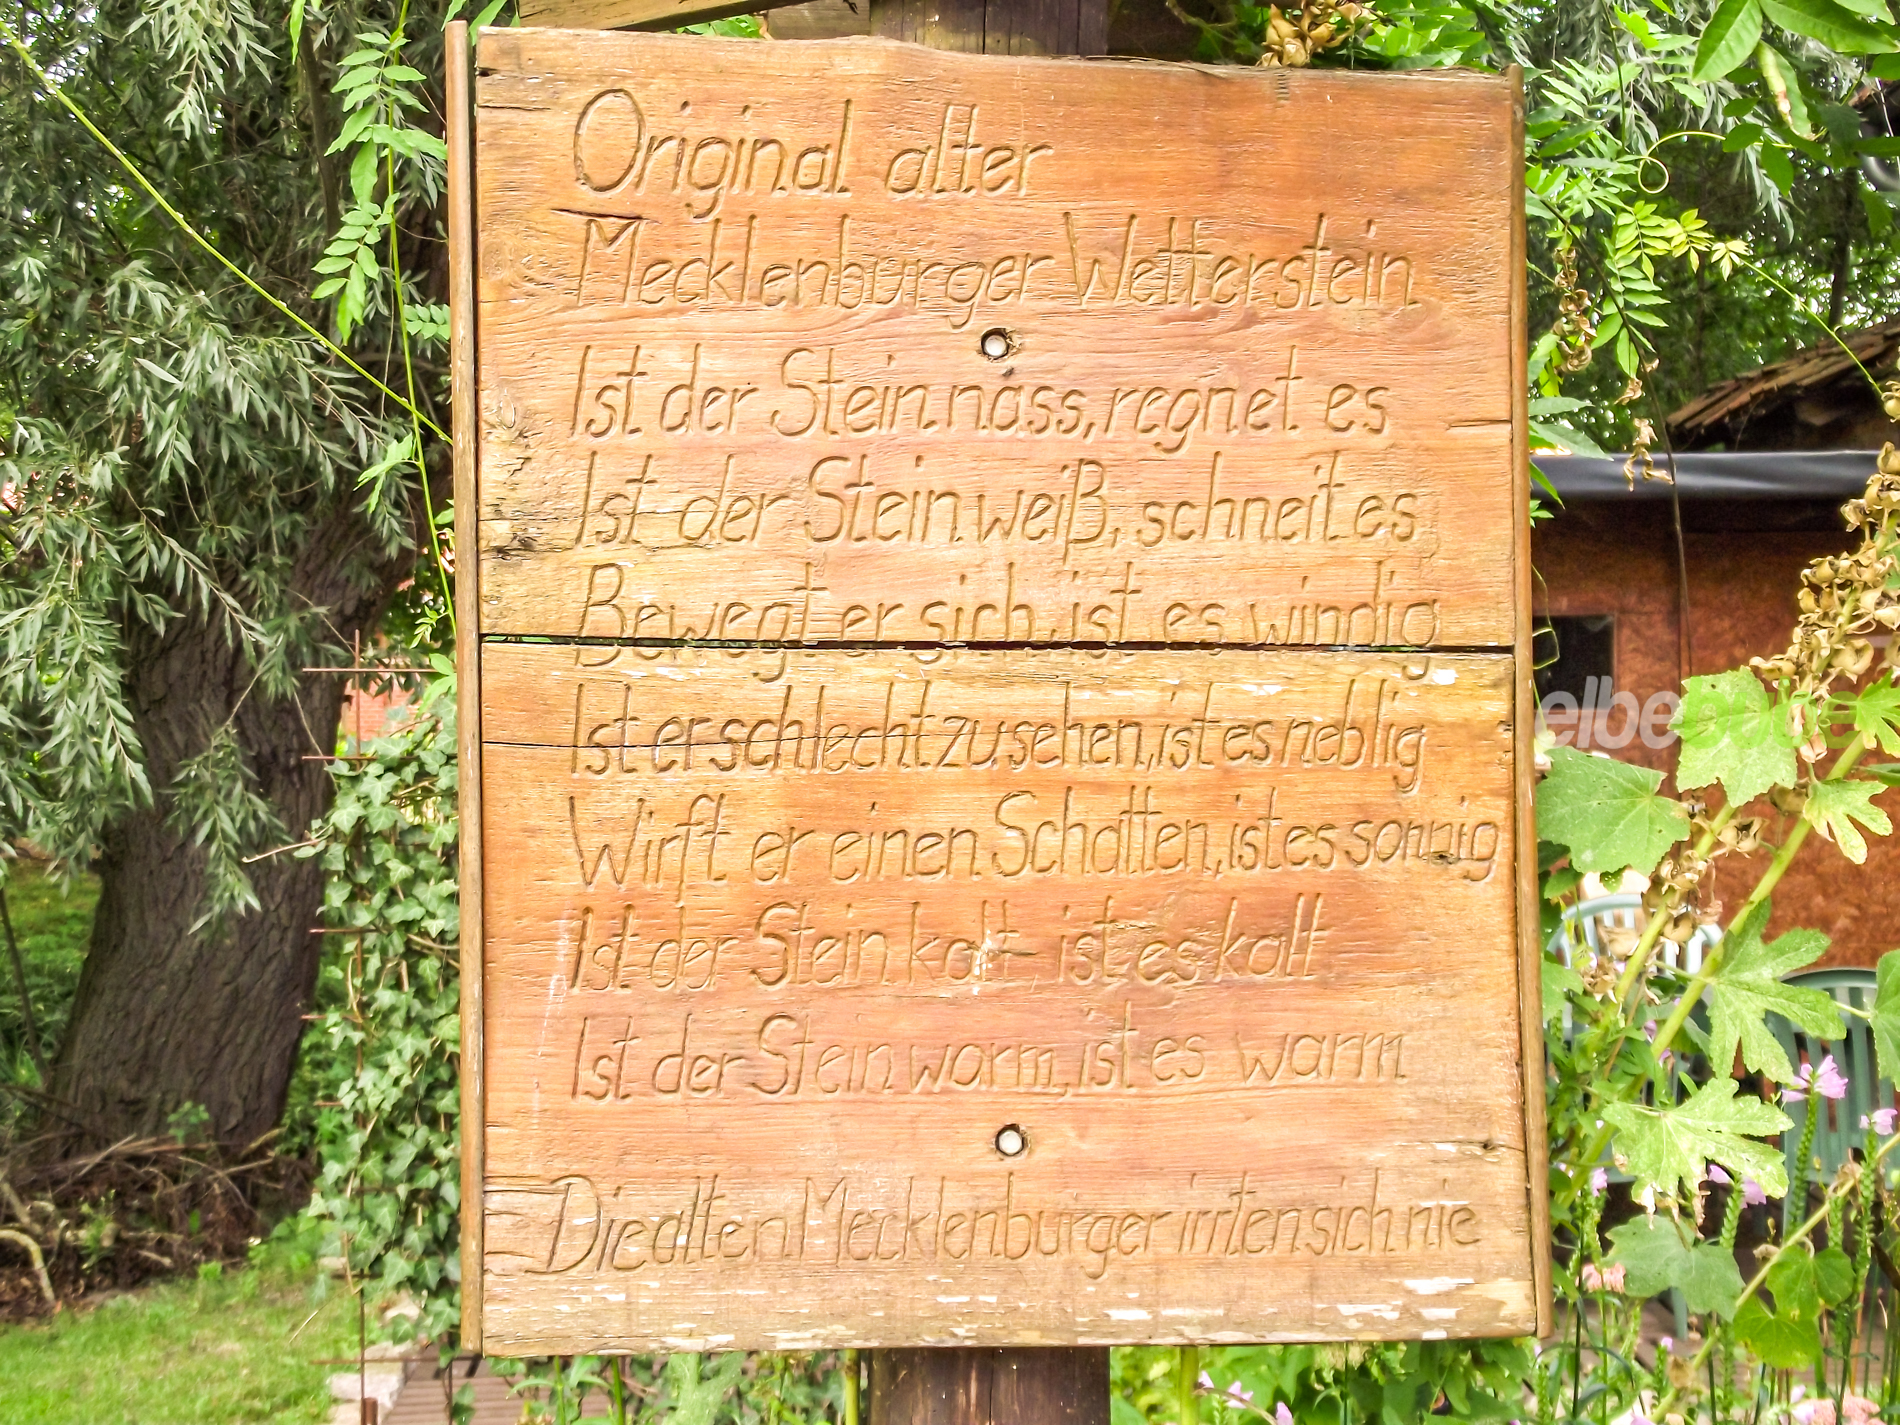 Original alter
Mecklenburger Wetterstein
Ist der Stein nass, regnet es
Ist der Stein weiß, schneit es
Bewegt er sich, ist es windig
Ist er schlecht zu sehen, ist es neblig
Wirft er einen Schatten, ist es sonnig
Ist der Stein kalt, ist es kalt
Ist der Stein warm, ist es warm
Die alten Mecklenburger irrten sich nie